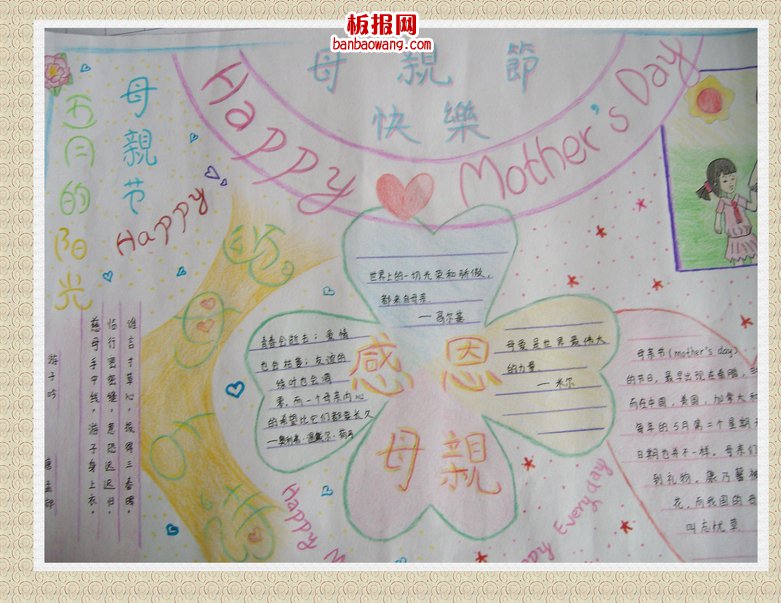 板报网
banbaowang.com
母親節
快樂
Happy Mother's Day
母親节
五月的阳光
Happy
世界上的一切光荣和骄傲,
都来自母亲
—高尔基
青春会逝去;爱情
也会枯萎;友谊的
绿叶也会凋
零,而一个母亲内心
的希望比它们都要长久
—奥利弗·温戴尔·荷马
母爱是世界最伟大
的力量
—米尔
感恩
母親
游子吟 唐 孟郊
慈母手中线,游子身上衣。
临行密密缝,意恐迟迟归。
谁言寸草心,报得三春晖。
母亲节(mother's day)
的节日,最早出现在希腊,
而在中国,美国,加拿大和
每年的5月第二个星期
日期也并不一样。母亲们
到礼物,康乃馨被
花,而我国的母
叫忘忧草
Happy M
Happy Everyday